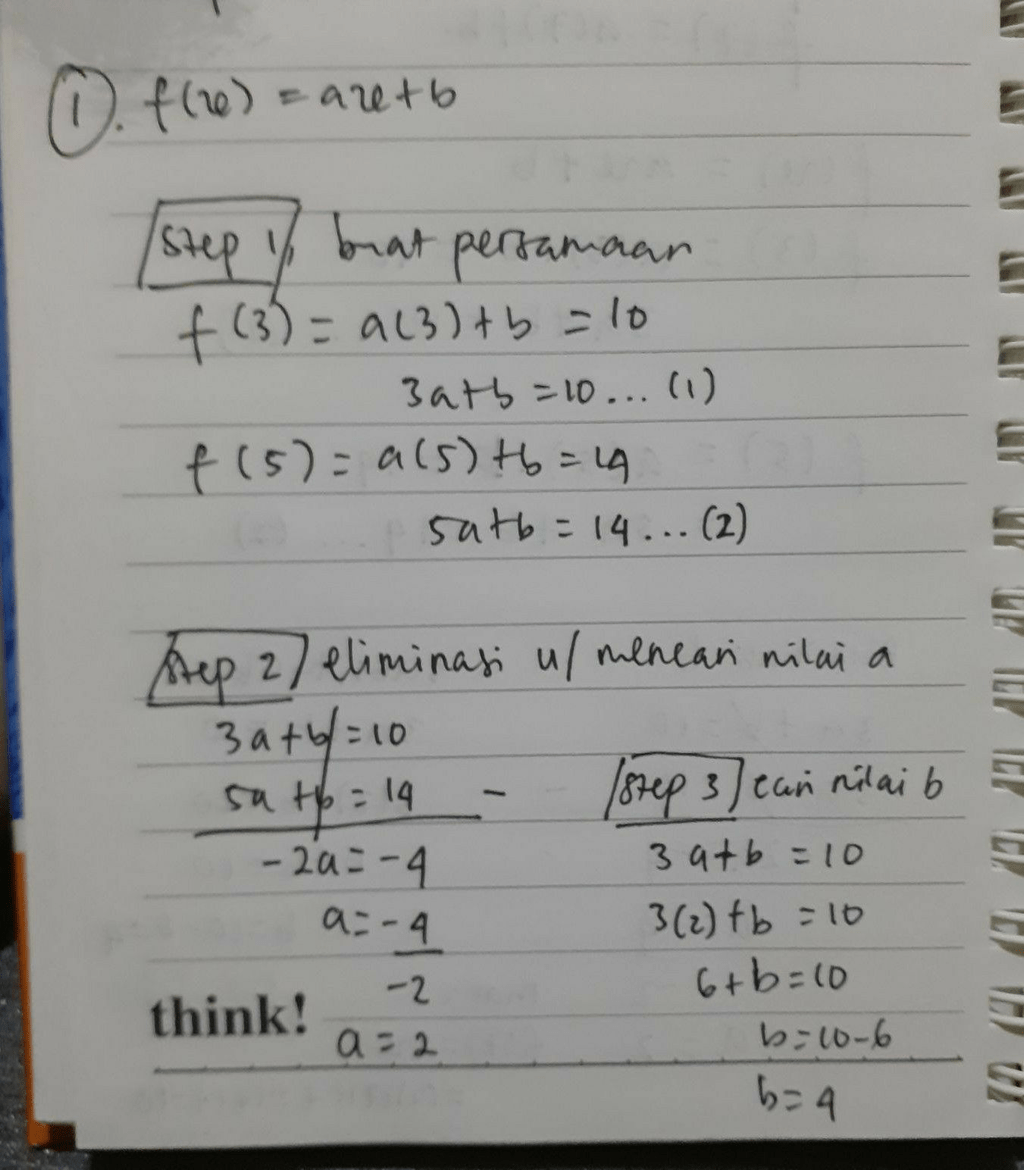 1. f(x) = ax+b
Step 1, buat persamaan
f(3) = a(3)+b = 10
3a+b = 10 ... (1)
f(5) = a(5)+b = 14
5a+b = 14 ... (2)
Step 2 eliminasi u/ mencari nilai a
3a+b = 10
5a+b = 14 -
-2a = -4
a = -4
-2
a = 2
Step 3 cari nilai b
3a+b = 10
3(2)+b = 10
6+b = 10
b = 10-6
b = 4
think!